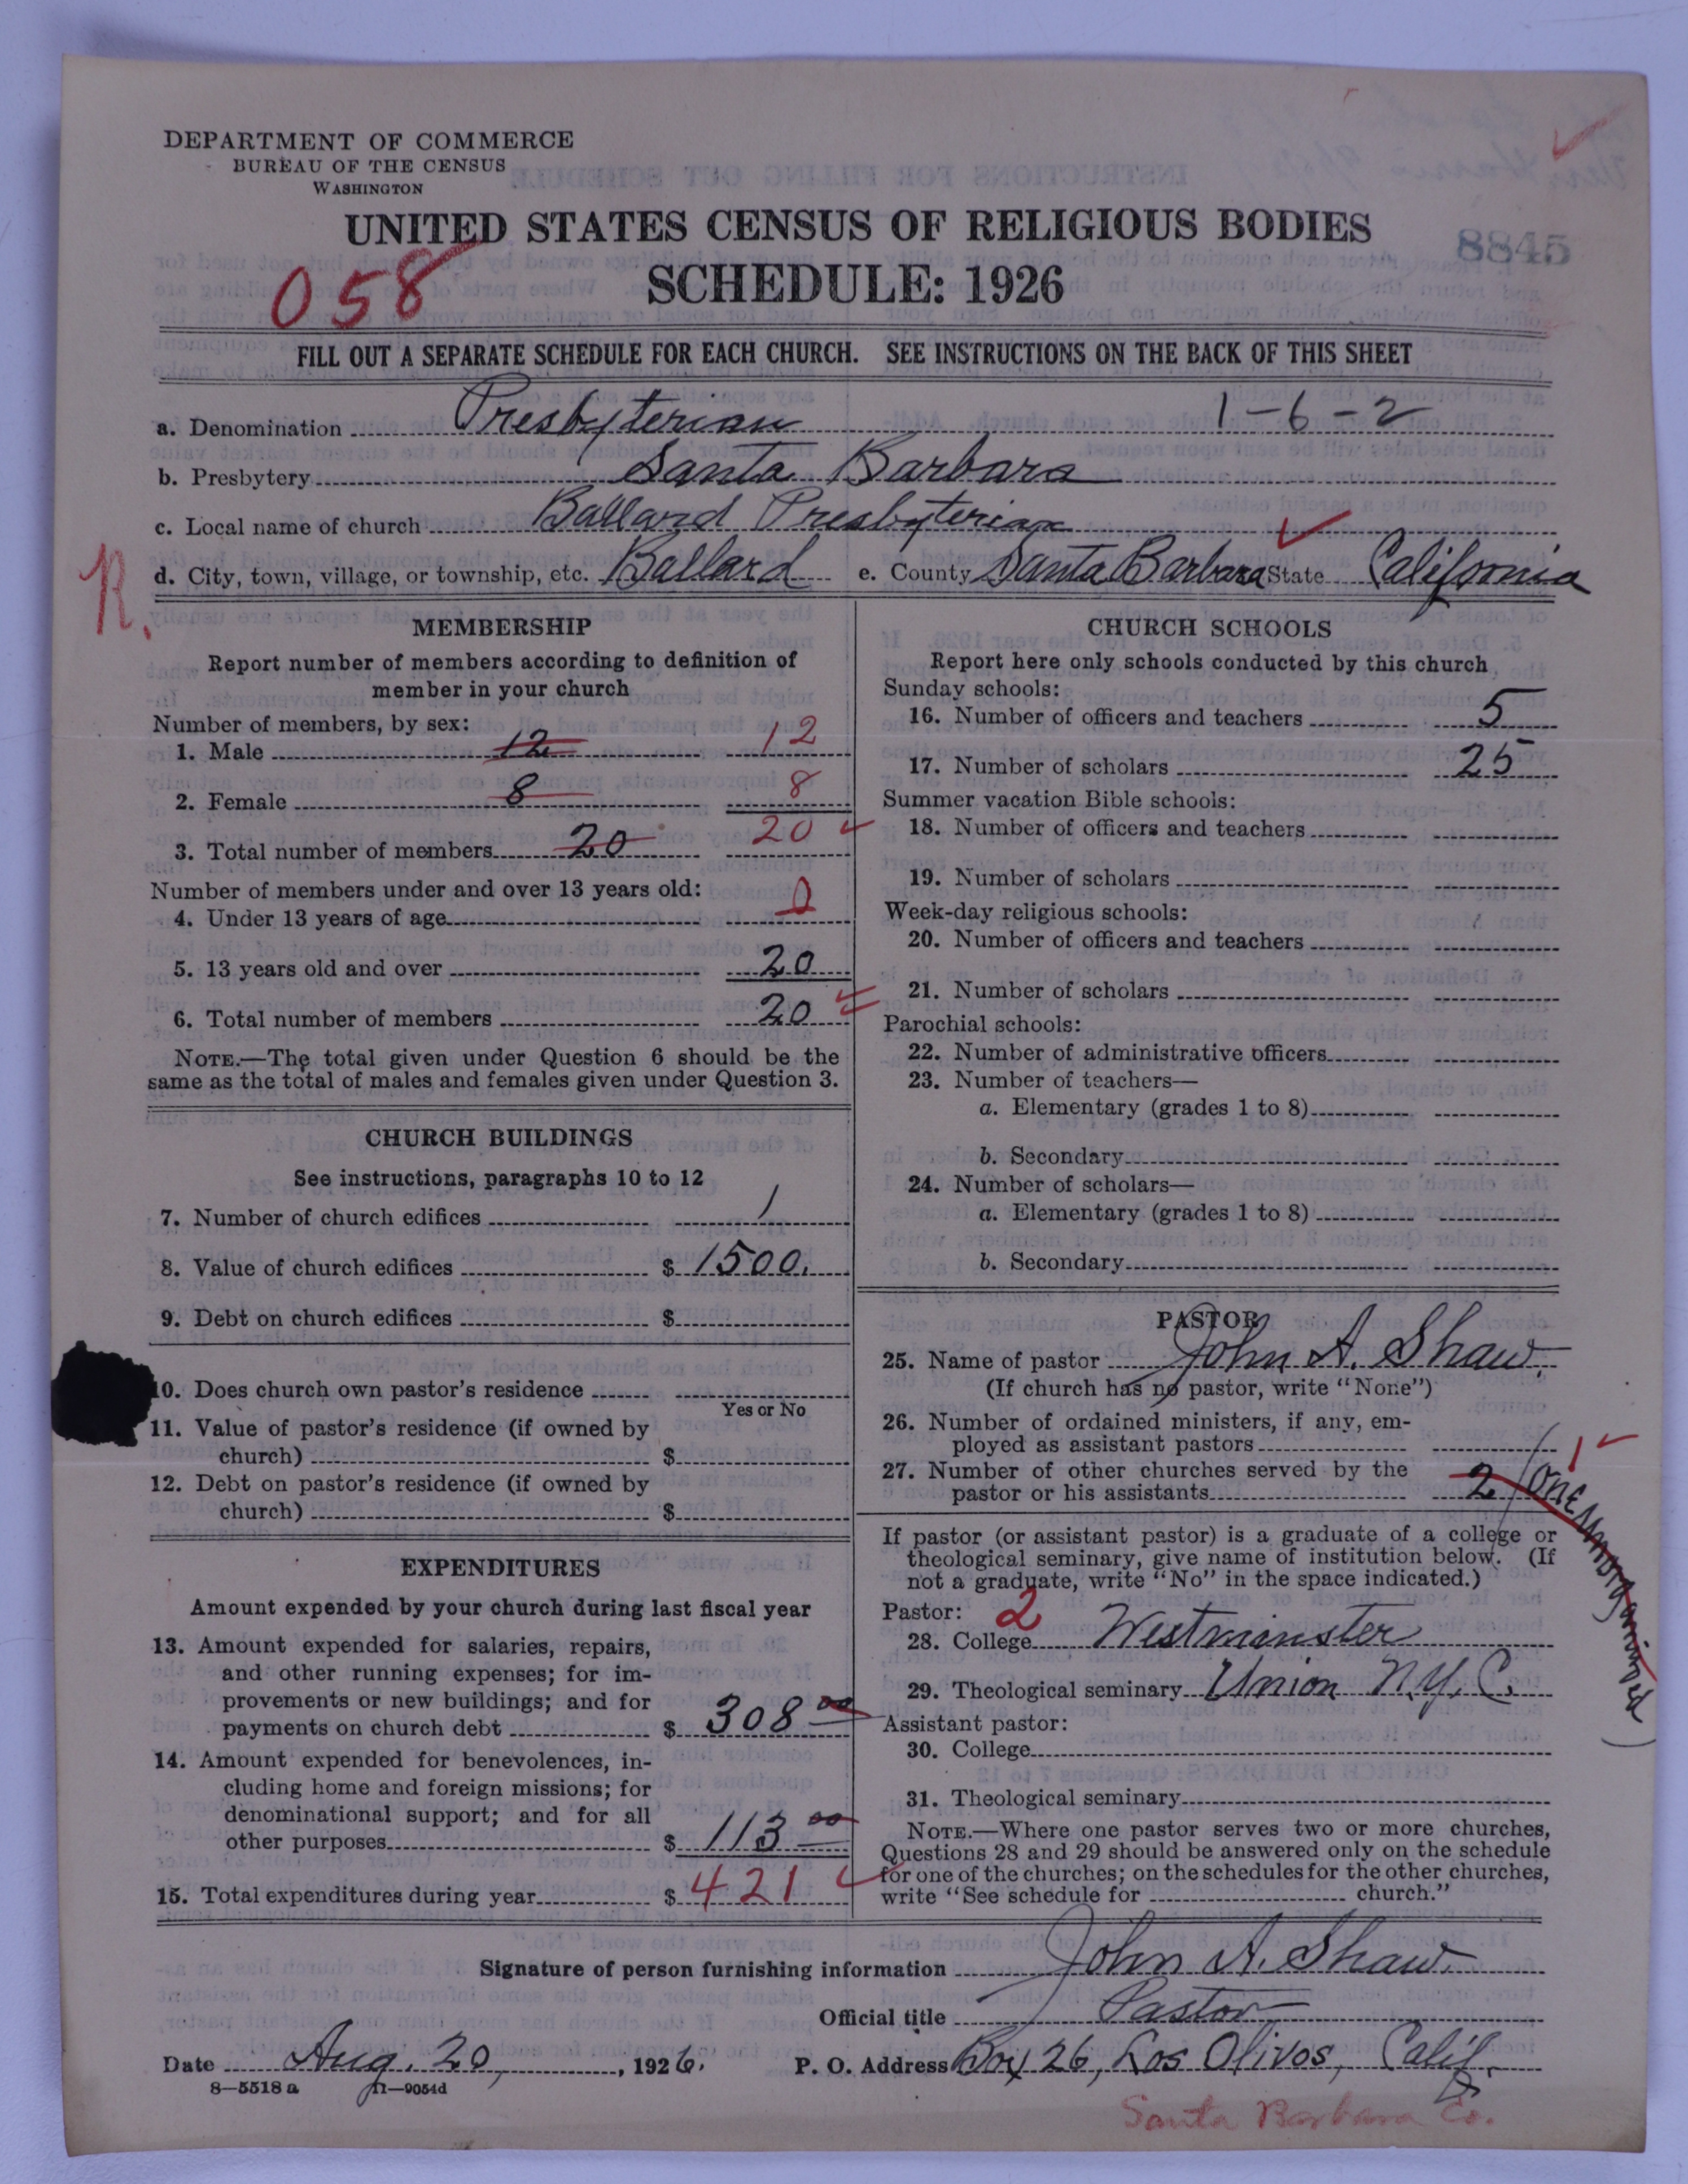 DEPARTMENT OF COMMERCE
BUREAU OF THE CENSUS
WASHINGTON
UNITED STATES CENSUS OF RELIGIOUS BODIES
8845
058
SCHEDULE: 1926
FILL OUT A SEPARATE SCHEDULE FOR EACH CHURCH. SEE INSTRUCTIONS ON THE BACK OF THIS SHEET
a. Denomination Presbyterian 1-6-2
b. Presbytery Santa Barbara
c. Local name of church Ballard Presbyterian
R.
d. City, town, village, or township, etc. Ballard e. County Santa Barbara State California
MEMBERSHIP
Report number of members according to definition of
member in your church
Number of members, by sex:
1. Male 12 12
2. Female 8 8
3. Total number of members 20 20
Number of members under and over 13 years old:
4. Under 13 years of age 0
5. 13 years old and over 20
6. Total number of members 20
NOTE.—The total given under Question 6 should be the
same as the total of males and females given under Question 3.
CHURCH BUILDINGS
See instructions, paragraphs 10 to 12
7. Number of church edifices 1
8. Value of church edifices $ 1500.
9. Debt on church edifices $
10. Does church own pastor's residence
Yes or No
11. Value of pastor's residence (if owned by
church) $
12. Debt on pastor's residence (if owned by
church) $
EXPENDITURES
Amount expended by your church during last fiscal year
13. Amount expended for salaries, repairs,
and other running expenses; for im-
provements or new buildings; and for
payments on church debt $ 308 00
14. Amount expended for benevolences, in-
cluding home and foreign missions; for
denominational support; and for all
other purposes $ 113 00
15. Total expenditures during year $ 421
CHURCH SCHOOLS
Report here only schools conducted by this church
Sunday schools:
16. Number of officers and teachers 5
17. Number of scholars 25
Summer vacation Bible schools:
18. Number of officers and teachers
19. Number of scholars
Week-day religious schools:
20. Number of officers and teachers
21. Number of scholars
Parochial schools:
22. Number of administrative officers
23. Number of teachers—
a. Elementary (grades 1 to 8)
b. Secondary
24. Number of scholars—
a. Elementary (grades 1 to 8)
b. Secondary
PASTOR
25. Name of pastor John A. Shaw.
(If church has no pastor, write "None")
26. Number of ordained ministers, if any, em-
ployed as assistant pastors
27. Number of other churches served by the
pastor or his assistants 2 (One unorganized) 1
If pastor (or assistant pastor) is a graduate of a college or
theological seminary, give name of institution below. (If
not a graduate, write "No" in the space indicated.)
Pastor: 2
28. College Westminster
29. Theological seminary Union N.Y.C.
Assistant pastor:
30. College
31. Theological seminary
NOTE.—Where one pastor serves two or more churches,
Questions 28 and 29 should be answered only on the schedule
for one of the churches; on the schedules for the other churches,
write "See schedule for church."
Signature of person furnishing information John A. Shaw.
Official title Pastor
Date Aug. 20, 1926. P. O. Address Box 26, Los Olivos, Calif.
8—5518 a 11—9054d
Santa Barbara Co.